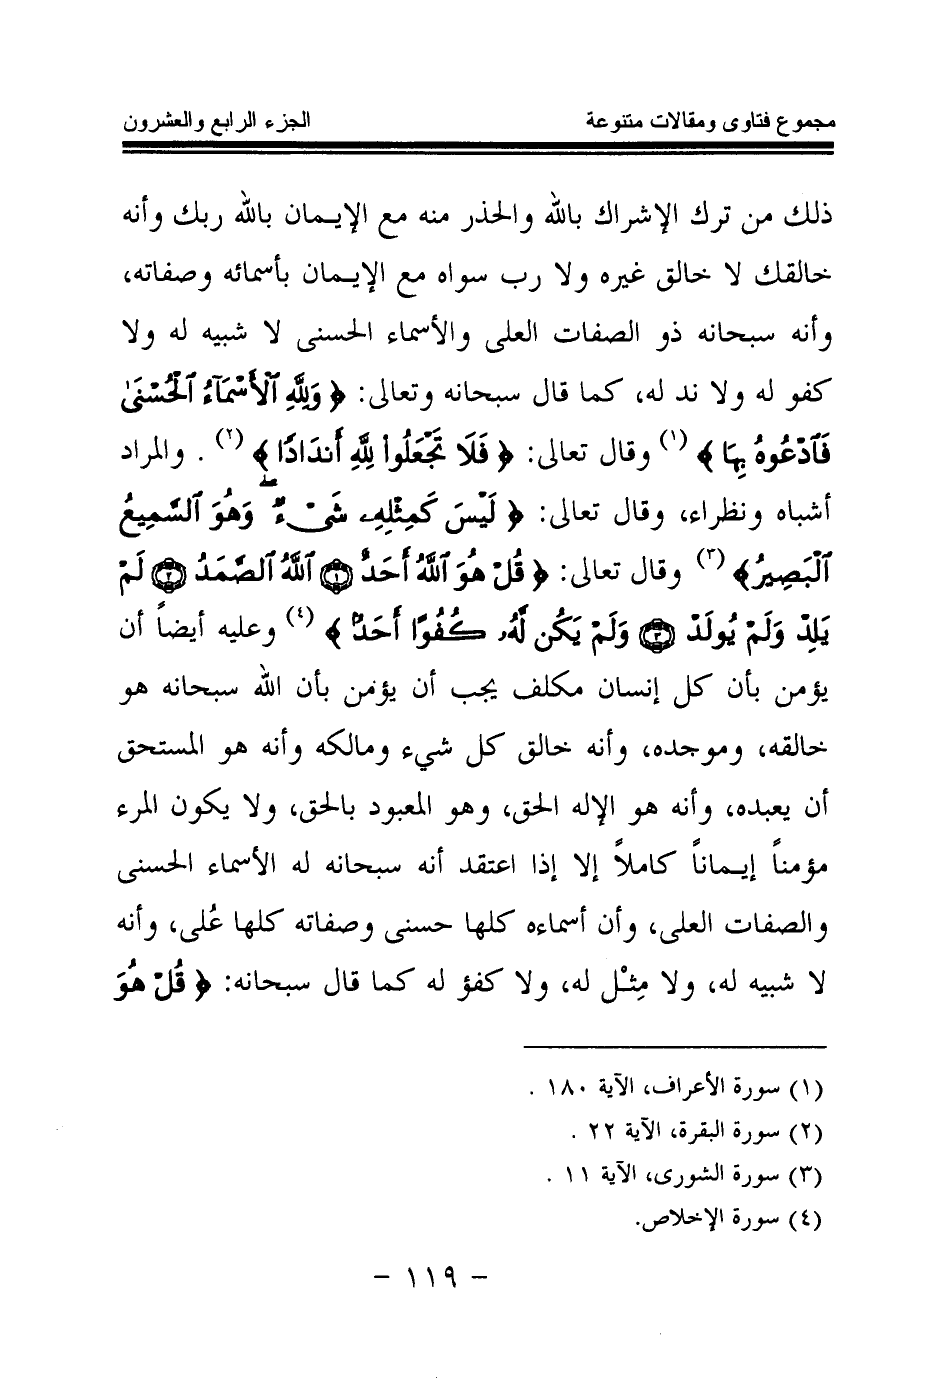 مجموع فتاوى ومقالات متنوعة الجزء الرابع والعشرون
ذلك من ترك الإشراك بالله والحذر منه مع الإيمان بالله ربك وأنه
خالقك لا خالق غيره ولا رب سواه مع الإيمان بأسمائه وصفاته،
وأنه سبحانه ذو الصفات العلى والأسماء الحسنى لا شبيه له ولا
كفو له ولا ند له، كما قال سبحانه وتعالى: ﴿ وَلِلَّهِ ٱلْأَسْمَآءُ ٱلْحُسْنَىٰ
فَٱدْعُوهُ بِهَا ﴾ (١) وقال تعالى: ﴿ فَلَا تَجْعَلُوا۟ لِلَّهِ أَندَادًا ﴾ (٢) . والمراد
أشباه ونظراء، وقال تعالى: ﴿ لَيْسَ كَمِثْلِهِۦ شَىْءٌ ۖ وَهُوَ ٱلسَّمِيعُ
ٱلْبَصِيرُ ﴾ (٣) وقال تعالى: ﴿ قُلْ هُوَ ٱللَّهُ أَحَدٌ ۝١ ٱللَّهُ ٱلصَّمَدُ ۝٢ لَمْ
يَلِدْ وَلَمْ يُولَدْ ۝٣ وَلَمْ يَكُن لَّهُۥ كُفُوًا أَحَدٌۢ ﴾ (٤) وعليه أيضاً أن
يؤمن بأن كل إنسان مكلف يجب أن يؤمن بأن الله سبحانه هو
خالقه، وموجده، وأنه خالق كل شيء ومالكه وأنه هو المستحق
أن يعبده، وأنه هو الإله الحق، وهو المعبود بالحق، ولا يكون المرء
مؤمناً إيماناً كاملاً إلا إذا اعتقد أنه سبحانه له الأسماء الحسنى
والصفات العلى، وأن أسماءه كلها حسنى وصفاته كلها عُلى، وأنه
لا شبيه له، ولا مِثْل له، ولا كفؤ له كما قال سبحانه: ﴿ قُلْ هُوَ
(١) سورة الأعراف، الآية ١٨٠ .
(٢) سورة البقرة، الآية ٢٢ .
(٣) سورة الشورى، الآية ١١ .
(٤) سورة الإخلاص.
- ١١٩ -